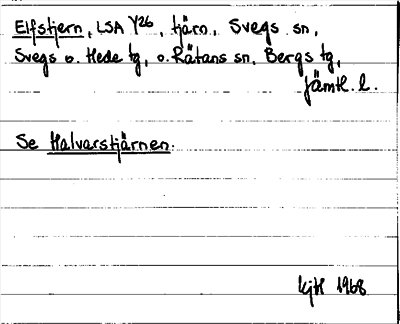 Elfstjern, LSA Y26, tjärn, Svegs sn,
Svegs o. Hede tg, o. Rätans sn, Bergs tg,
Jämtl. l.
Se Halvarstjärnen.
1968